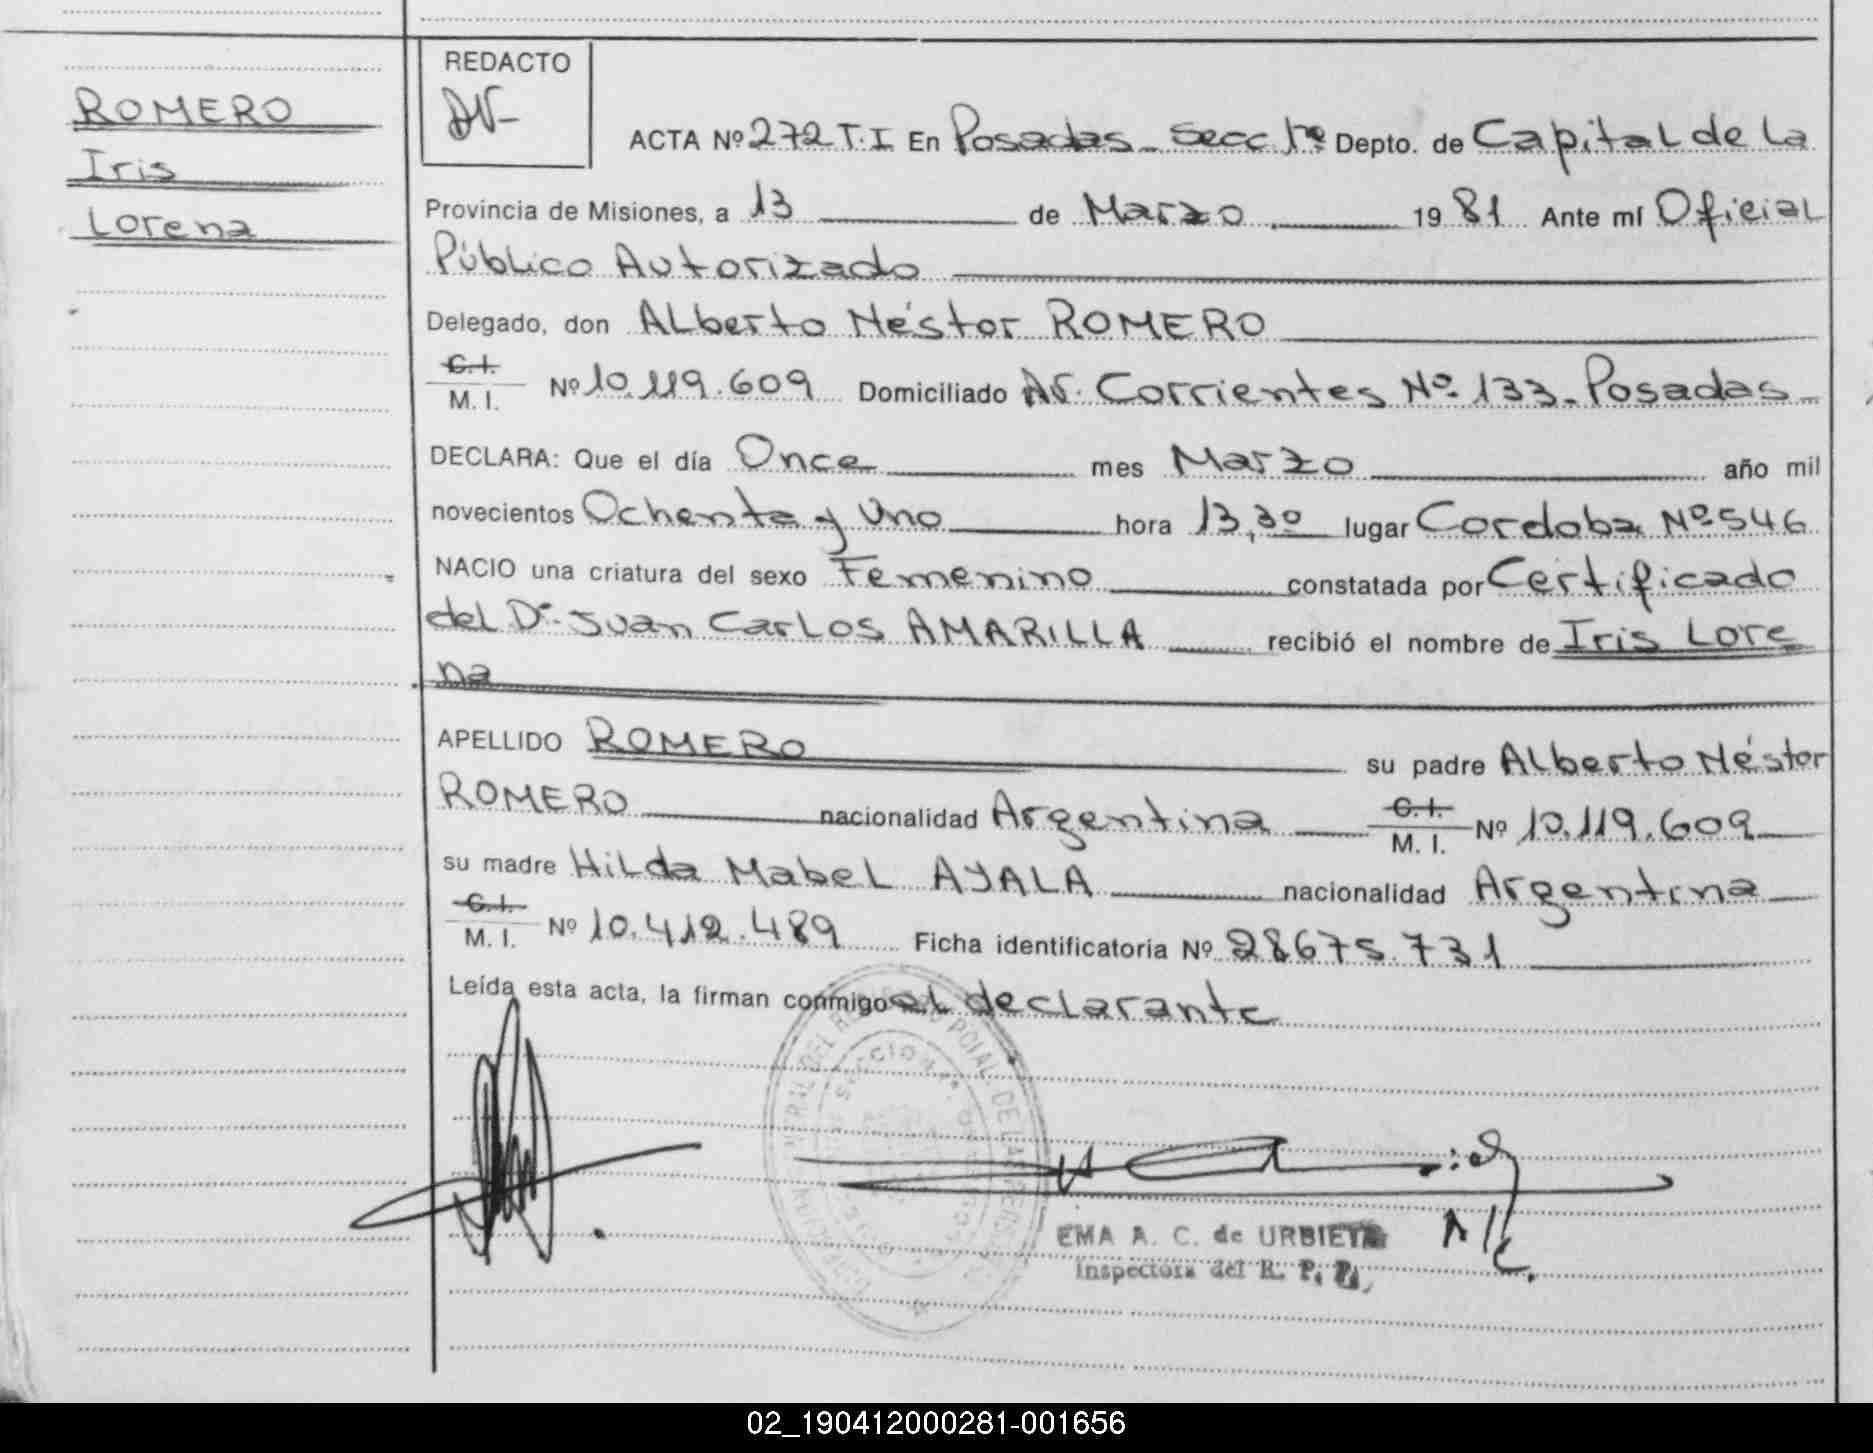 ROMERO
Iris
Lorena
REDACTO
ACTA Nº 272 T.I En Posadas - Secc 1ª Depto. de Capital de La
Provincia de Misiones, a 13 de Marzo 1981 Ante mí Oficial
Público Autorizado
Delegado, don Alberto Néstor ROMERO
C.I.
M. I. Nº 10.119.609 Domiciliado Av. Corrientes Nº 133 - Posadas -
DECLARA: Que el día Once mes Marzo año mil
novecientos Ochenta y Uno hora 13,30 lugar Cordoba Nº 546
NACIO una criatura del sexo Femenino constatada por Certificado
del Dr. Juan Carlos AMARILLA recibió el nombre de Iris Lore
na
APELLIDO ROMERO su padre Alberto Néstor
ROMERO nacionalidad Argentina C.I. M. I. Nº 10.119.609
su madre Hilda Mabel AYALA nacionalidad Argentina
C.I.
M. I. Nº 10.412.489 Ficha identificatoria Nº 28675.731
Leída esta acta, la firman conmigo el declarante
EMA A. C. de URBIETA
Inspectora del R. P. P.
02_190412000281-001656